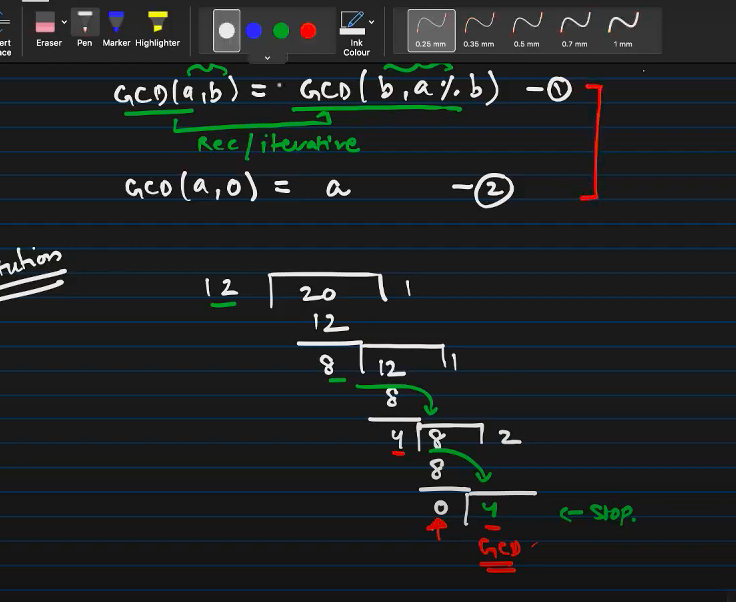 Eraser Pen Marker Highlighter Ink Colour 0.25 mm 0.35 mm 0.5 mm 0.7 mm 1 mm
GCD(a,b) = GCD(b, a % b) - ①
Rec/iterative
GCD(a,0) = a - ②
12 20 1
12
8 12 1
8
4 8 2
8
0 4 ← Stop.
GCD